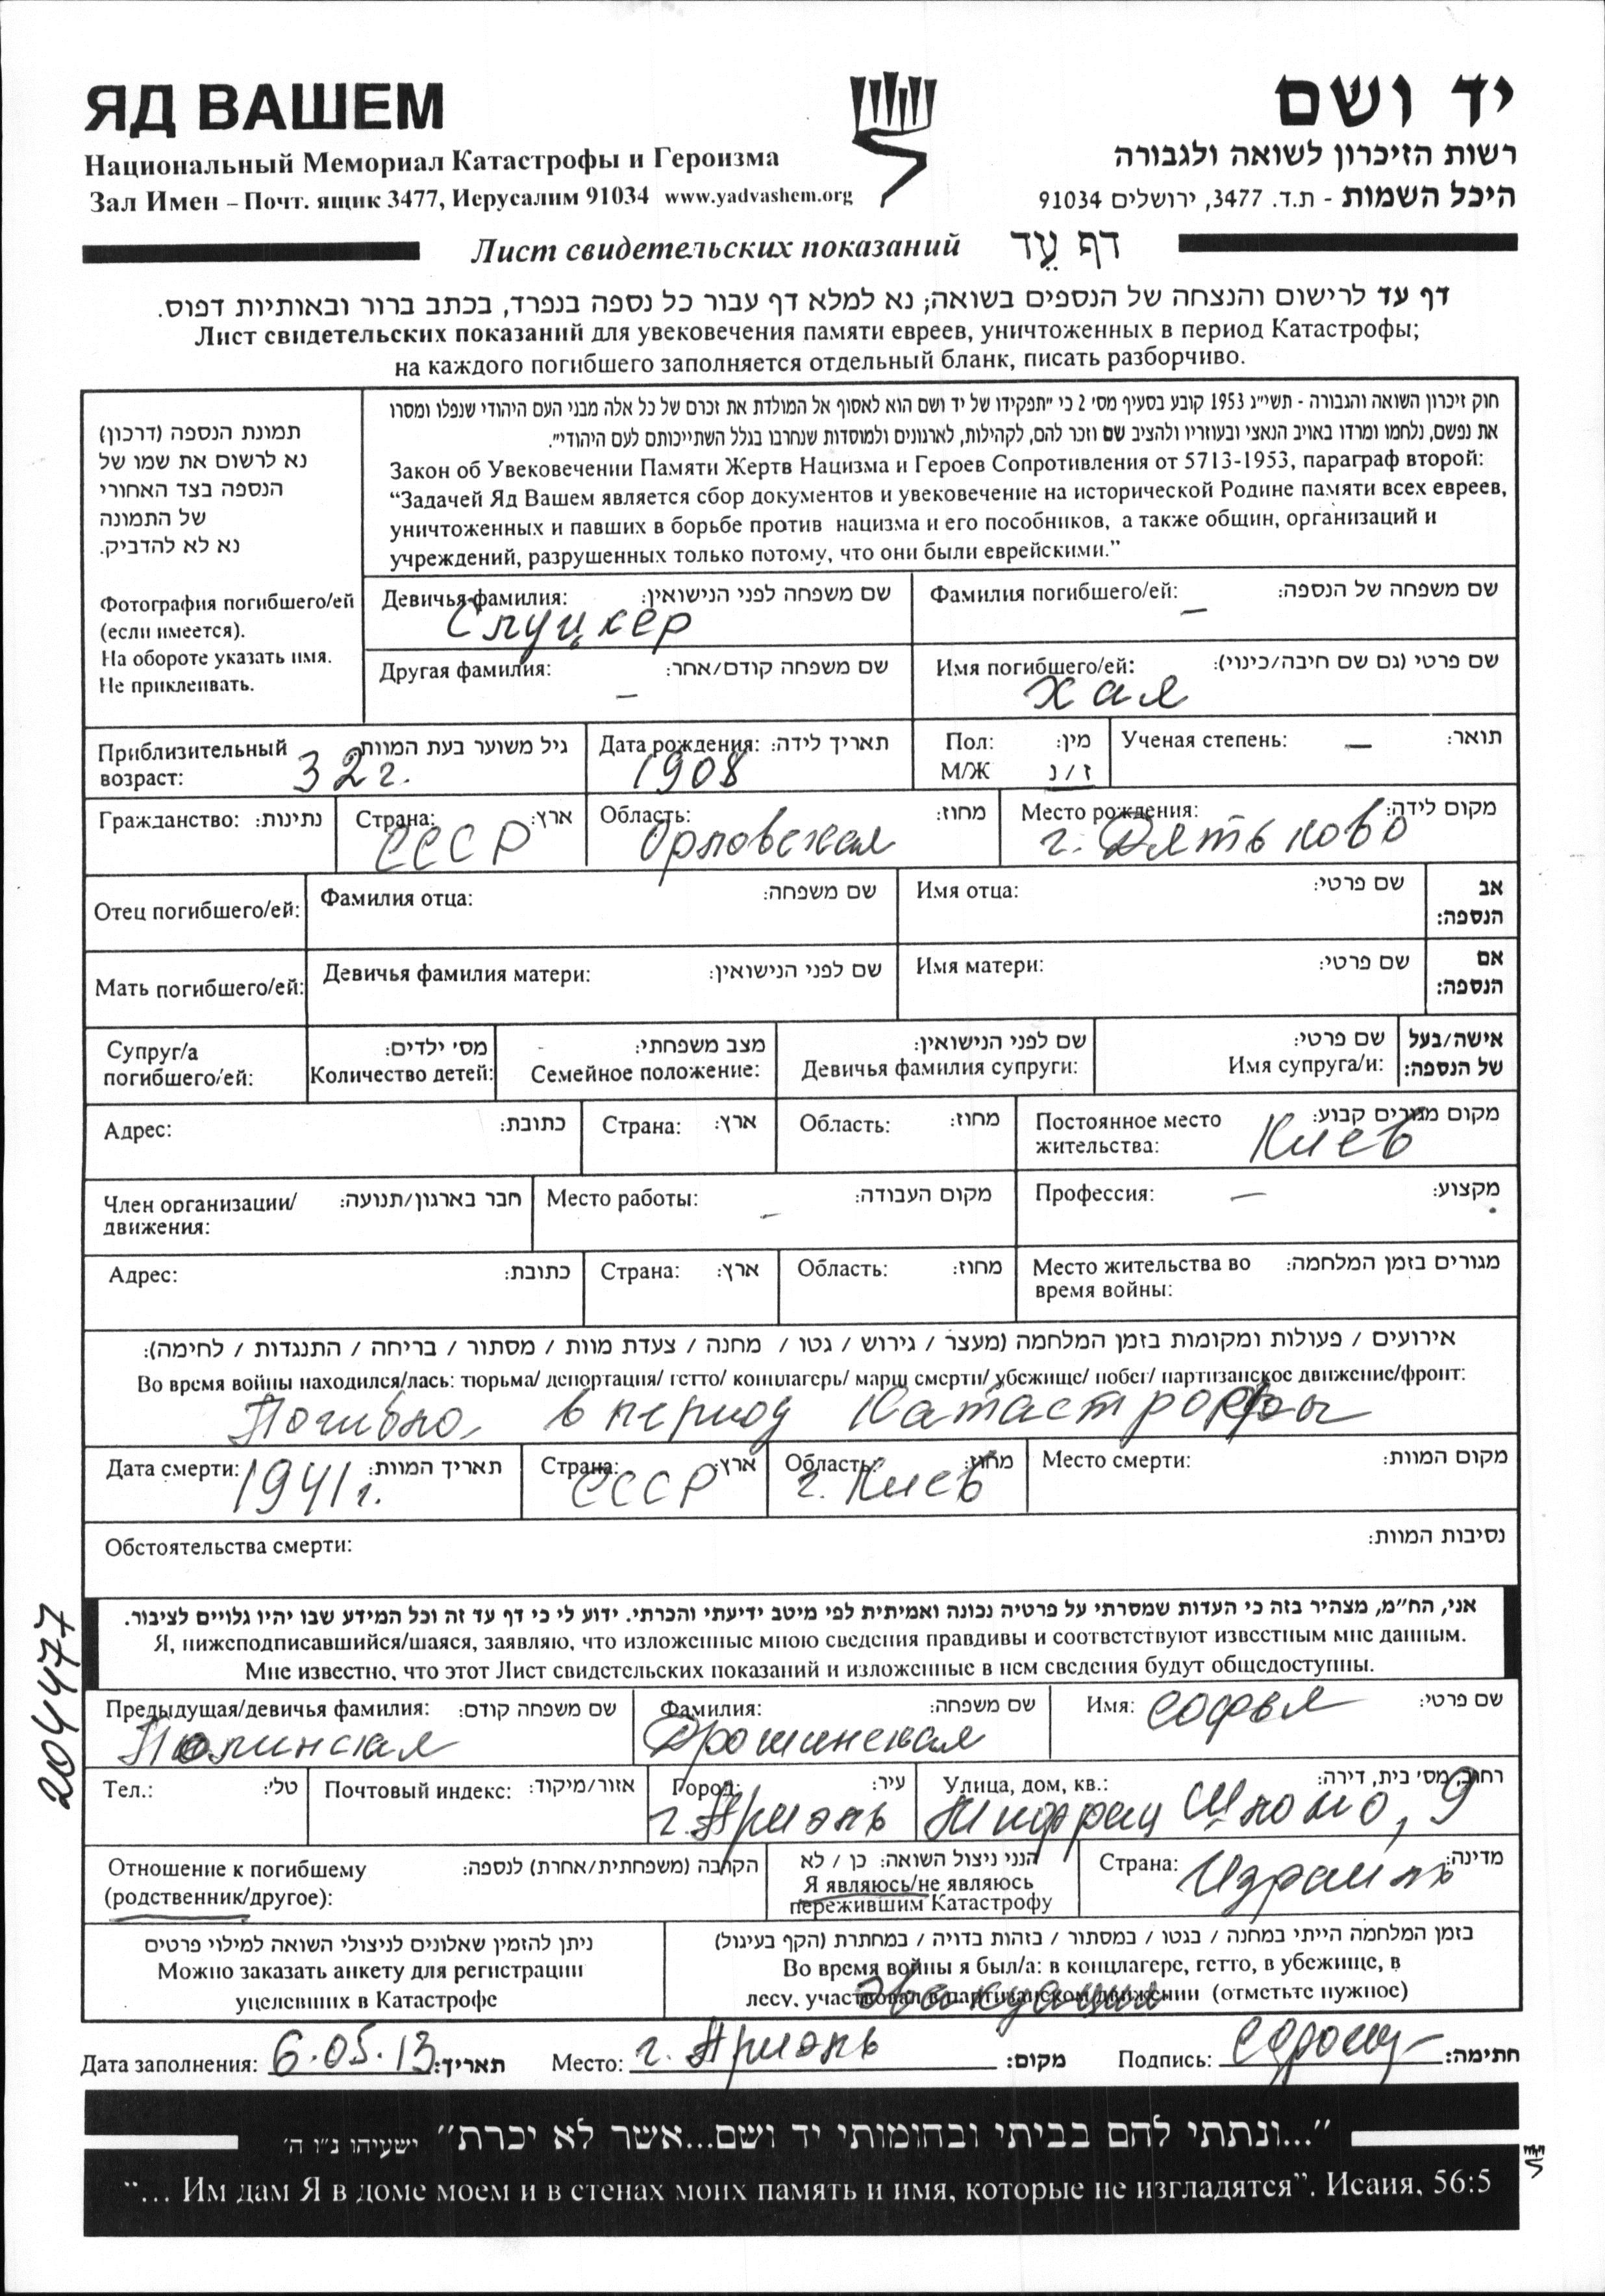 ЯД ВАШЕМ
יד ושם
Национальный Мемориал Катастрофы и Героизма
רשות הזיכרון לשואה ולגבורה
Зал Имен – Почт. ящик 3477, Иерусалим 91034 www.yadvashem.org
היכל השמות - ת.ד. 3477, ירושלים 91034
Лист свидетельских показаний דף עֵד
דף עד לרישום והנצחה של הנספים בשואה; נא למלא דף עבור כל נספה בנפרד, בכתב ברור ובאותיות דפוס.
Лист свидетельских показаний для увековечения памяти евреев, уничтоженных в период Катастрофы;
на каждого погибшего заполняется отдельный бланк, писать разборчиво.
תמונת הנספה (דרכון)
נא לרשום את שמו של
הנספה בצד האחורי
של התמונה
נא לא להדביק.
Фотография погибшего/ей
(если имеется).
На обороте указать имя.
Не приклеивать.
חוק זיכרון השואה והגבורה - תשי״ג 1953 קובע בסעיף מס׳ 2 כי ״תפקידו של יד ושם הוא לאסוף אל המולדת את זכרם של כל אלה מבני העם היהודי שנפלו ומסרו
את נפשם, נלחמו ומרדו באויב הנאצי ובעוזריו ולהציב שם וזכר להם, לקהילות, לארגונים ולמוסדות שנחרבו בגלל השתייכותם לעם היהודי״.
Закон об Увековечении Памяти Жертв Нацизма и Героев Сопротивления от 5713-1953, параграф второй:
“Задачей Яд Вашем является сбор документов и увековечение на исторической Родине памяти всех евреев,
уничтоженных и павших в борьбе против нацизма и его пособников, а также общин, организаций и
учреждений, разрушенных только потому, что они были еврейскими.”
Девичья фамилия: שם משפחה לפני הנישואין:
Слуцкер
Фамилия погибшего/ей: שם משפחה של הנספה:
–
Другая фамилия: שם משפחה קודם/אחר:
–
Имя погибшего/ей: שם פרטי (גם שם חיבה/כינוי):
Хая
Приблизительный возраст: גיל משוער בעת המוות:
32 г.
Дата рождения: תאריך לידה:
1908
Пол: מין:
М/Ж ז / נ
Ученая степень: — תואר:
Гражданство: נתינות:
Страна: ארץ:
СССР
Область: מחוז:
Орловская
Место рождения: מקום לידה:
г. Дятьково
Отец погибшего/ей: Фамилия отца: שם משפחה: Имя отца: שם פרטי: אב הנספה:
Мать погибшего/ей: Девичья фамилия матери: שם לפני הנישואין: Имя матери: שם פרטי: אם הנספה:
Супруг/а погибшего/ей: מס׳ ילדים: Количество детей: מצב משפחתי: Семейное положение: שם לפני הנישואין: Девичья фамилия супруги: שם פרטי: Имя супруга/и: אישה/בעל של הנספה:
Адрес: כתובת: Страна: ארץ: Область: מחוז: Постоянное место жительства: מקום מגורים קבוע:
Киев
Член организации/движения: חבר בארגון/תנועה: Место работы: – מקום העבודה: Профессия: — מקצוע:
Адрес: כתובת: Страна: ארץ: Область: מחוז: Место жительства во время войны: מגורים בזמן המלחמה:
אירועים / פעולות ומקומות בזמן המלחמה (מעצר / גירוש / גטו / מחנה / צעדת מוות / מסתור / בריחה / התנגדות / לחימה):
Во время войны находился/лась: тюрьма/ депортация/ гетто/ концлагерь/ марш смерти/ убежище/ побег/ партизанское движение/фронт:
Погибла в период Катастрофы
Дата смерти: תאריך המוות:
1941 г.
Страна: ארץ:
СССР
Область: מחוז:
г. Киев
Место смерти: מקום המוות:
Обстоятельства смерти: נסיבות המוות:
אני, הח״מ, מצהיר בזה כי העדות שמסרתי על פרטיה נכונה ואמיתית לפי מיטב ידיעתי והכרתי. ידוע לי כי דף עד זה וכל המידע שבו יהיו גלויים לציבור.
Я, нижеподписавшийся/шаяся, заявляю, что изложенные мною сведения правдивы и соответствуют известным мне данным.
Мне известно, что этот Лист свидетельских показаний и изложенные в нем сведения будут общедоступны.
204477
Предыдущая/девичья фамилия: שם משפחה קודם:
Фамилия: שם משפחה:
Дрошинская
Имя: Софья שם פרטי:
Тел.: טל׳: Почтовый индекс: אזור/מיקוד:
Город: עיר:
г. Ариэль
Улица, дом, кв.: רחוב, מס׳ בית, דירה:
Шломо, 9
Отношение к погибшему הקרבה (משפחתית/אחרת) לנספה:
(родственник/другое):
הנני ניצול השואה: כן / לא
Я являюсь/не являюсь
пережившим Катастрофу
Страна: מדינה:
Израиль
ניתן להזמין שאלונים לניצולי השואה למילוי פרטים
Можно заказать анкету для регистрации
уцелевших в Катастрофе
בזמן המלחמה הייתי במחנה / בגטו / במסתור / בזהות בדויה / במחתרת (הקף בעיגול)
Во время войны я был/а: в концлагере, гетто, в убежище, в
лесу, участвовал в партизанском движении (отметьте нужное)
эвакуация
Дата заполнения: 6.05.13 תאריך: Место: г. Ариэль מקום: Подпись: חתימה:
״...ונתתי להם בביתי ובחומותי יד ושם...אשר לא יכרת״ ישעיהו נ״ו ה׳
“... Им дам Я в доме моем и в стенах моих память и имя, которые не изгладятся”. Исаия, 56:5